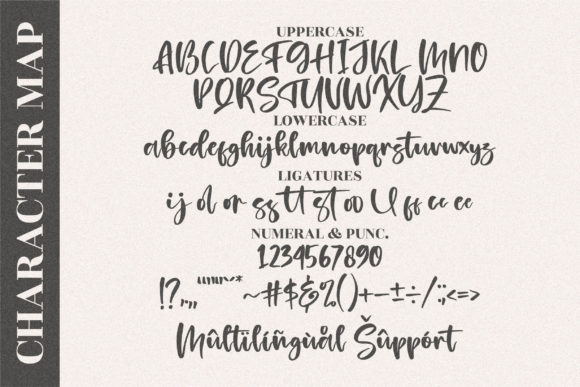 CHARACTER MAP
UPPERCASE
ABCDEFGHIJKL MNO
PQRSTUVWXYZ
LOWERCASE
abcdefghijklmnopqrstuvwxyz
LIGATURES
ij ol or ss tt st oo ll ff cc ee
NUMERAL & PUNC.
1234567890
!?,,, “”‘’~* ~#$&%()+-±÷/:;<=>
Mûltïlíñgùål Šûppórt